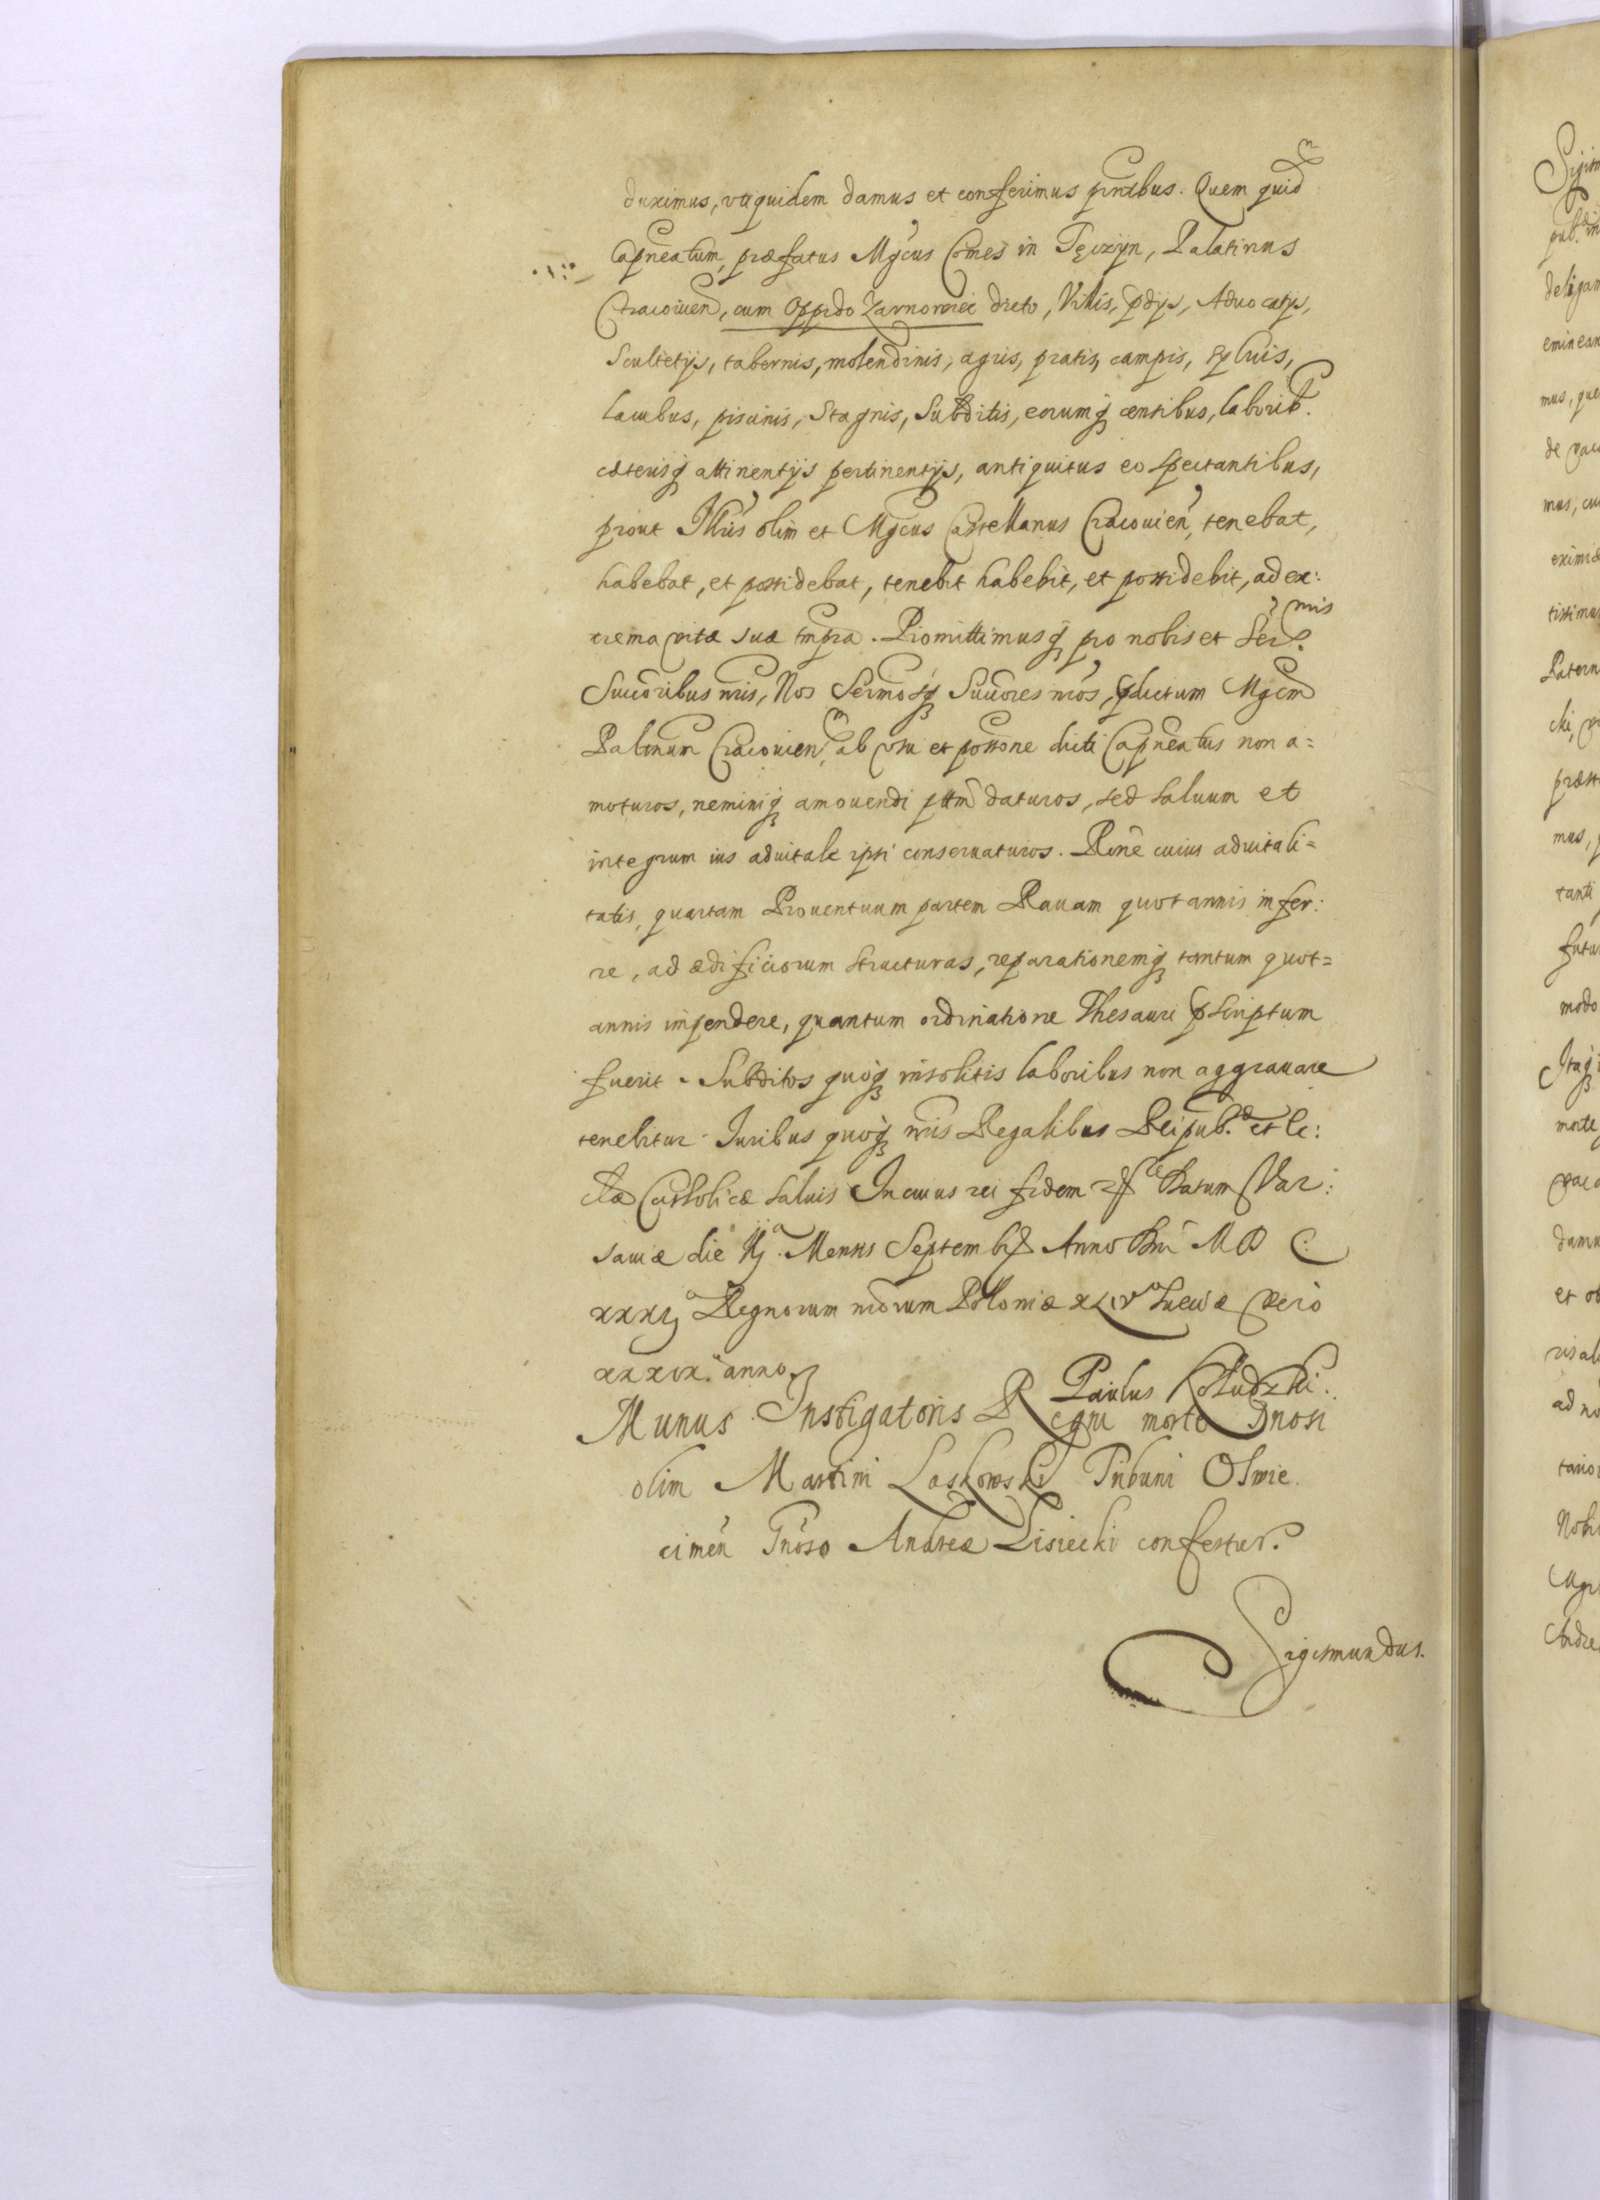 duximus, vti quidem damus et conferimus pntibus. Quem quid͠m
Capneatum, præfatus Mgcus Comes in Tęczÿn, Palatinus
Cracouien, cum Oppido Zarnowiec dicto, Villis, pdijs, Aduocatijs,
Scultetijs, tabernis, molendinis, agris, pratis, campis, syluis,
lacubus, piscinis, Stagnis, Subditis, eorumq censibus, laborib.
cæterisq attinentijs pertinentijs, antiquitus eo spectantibus,
prout Illris olim et Mgcus Castellanus Cracouien, tenebat,
habebat, et possidebat, tenebit habebit, et possidebit, ad ex:
trema vitæ suæ tmpra. Promittimusq pro nobis et Ser.mis
Succoribus nris, Nos Sermosq Succores nros, pdictum Mgcm
Palnum Cracouien, ab vsu et possone dicti Capneatus non a=
moturos, neminiq amouendi pttm daturos, sed saluum et
integrum ius aduitale ipsi conseruaturos. Rone cuius aduitali=
tatis, quartam Prouentuum partem Rauam quotannis infer:
re, ad ædificiorum structuras, reparationemq tantum quot=
annis impendere, quantum ordinatione Thesauri pscriptum
fuerit. Subditos quoq insolitis laboribus non aggrauare
tenebitur. Iuribus quoq nris Regalibus Reipub. et Ec:
clæ Catholicæ saluis In cuius rei fidem Datum Var:
sauiæ die Mensis Septemb Anno Dni M D C.
xxxij Regnorum nrorum Poloniæ xLiv Sueciæ vero
xxxix. anno.
Paulus Kołudzki.
Munus Instigatoris Regni morte Gnosi
olim Martini Laskowski Tribuni Oswie.
cimen Gnoso Andreæ Lisiecki confertur.
Sigismundus.